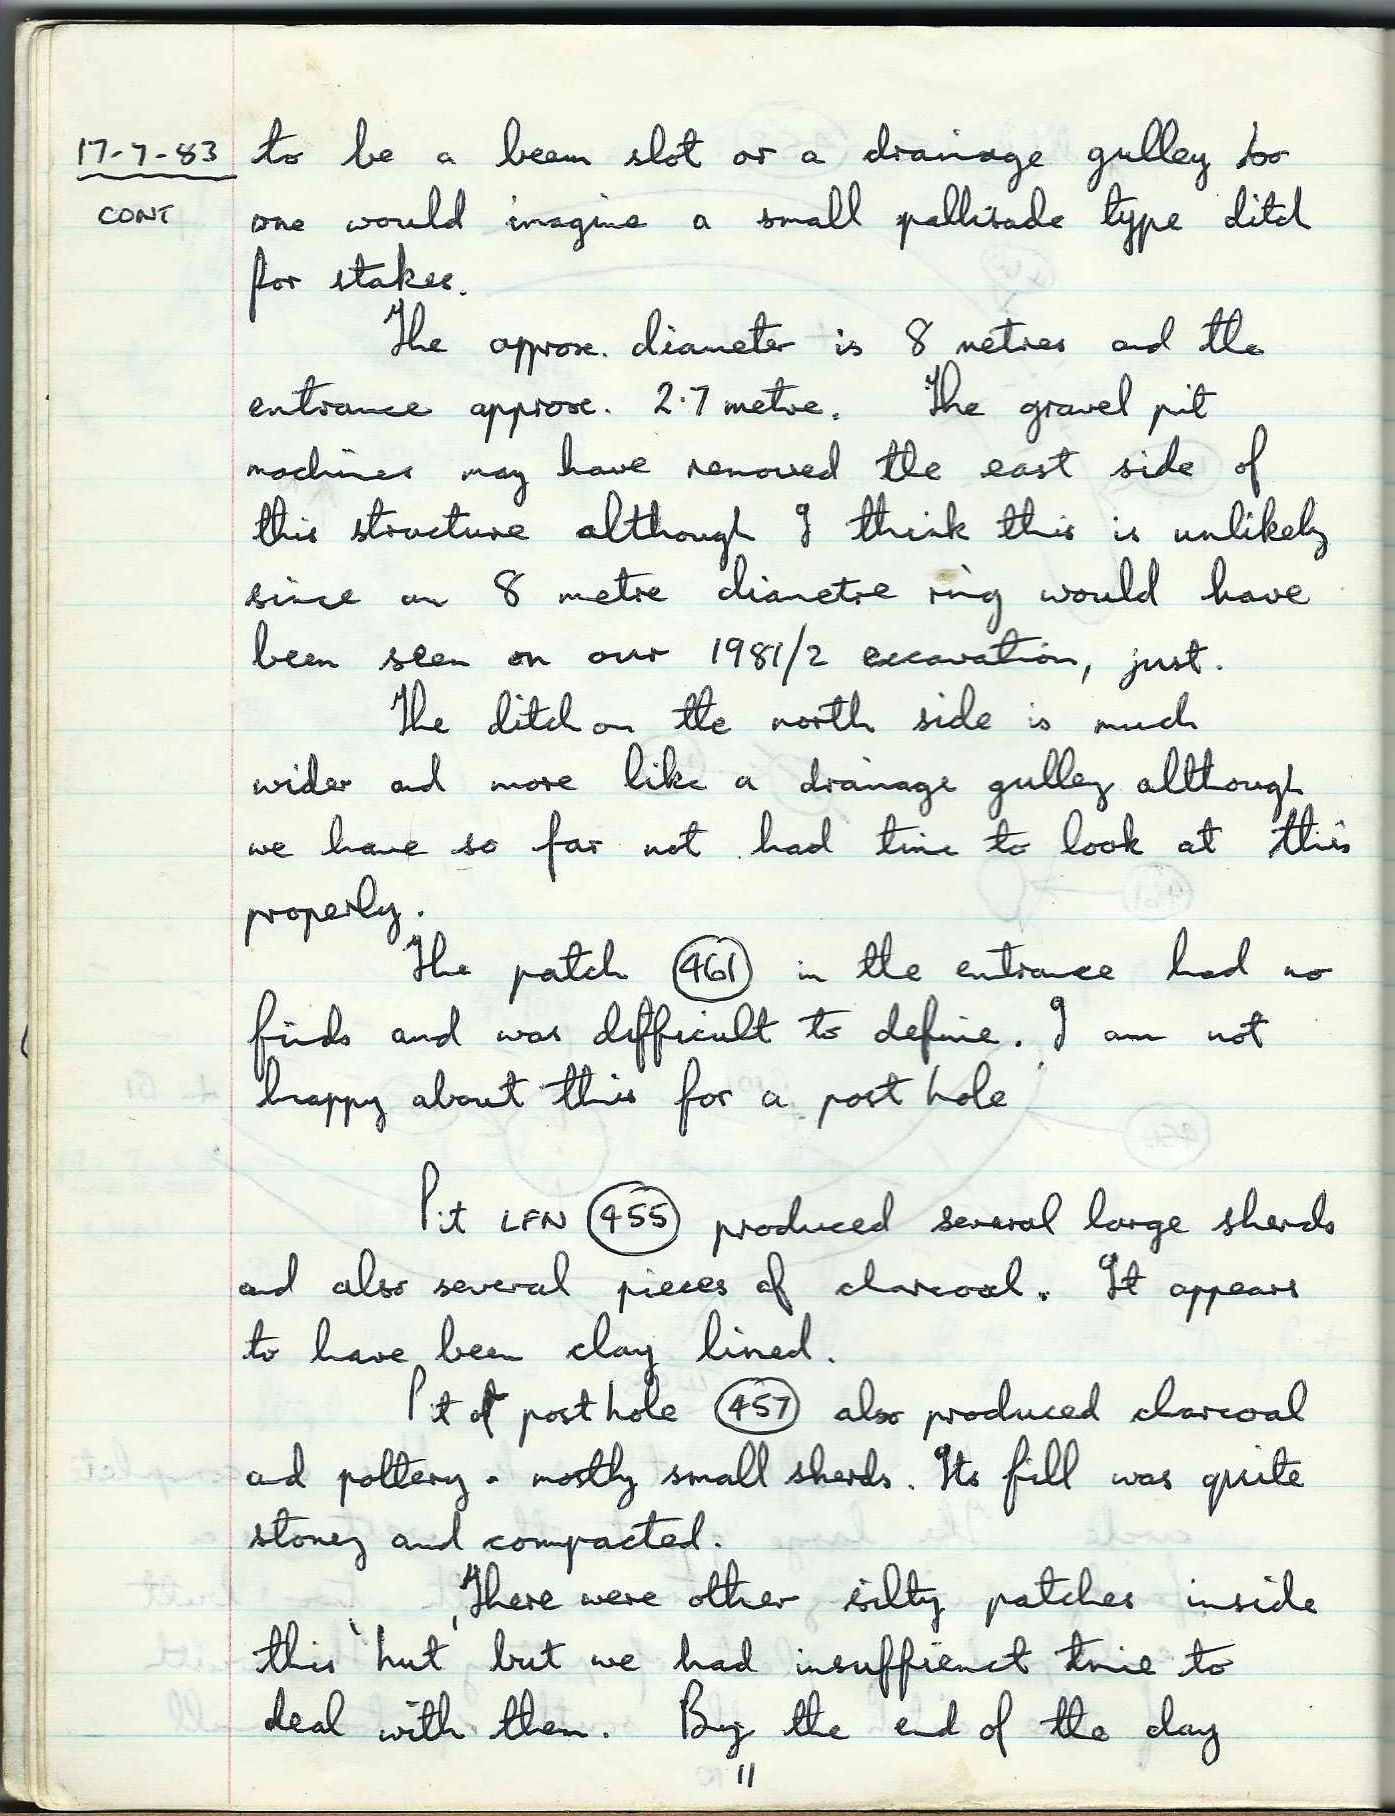 17-7-83 to be a beam slot or a drainage gulley so
CONT one would imagine a small pallisade type ditch
for stakes.
The approx. diameter is 8 metres and the
entrance approx. 2.7 metre. The gravel pit
machines may have removed the east side of
this structure although I think this is unlikely
since an 8 metre diametre ring would have
been seen on our 1981/2 excavation, just.
The ditch on the north side is much
wider and more like a drainage gulley although
we have so far not had time to look at this
properly.
The patch 461 in the entrance had no
finds and was difficult to define. I am not
happy about this for a post hole
Pit LFN 455 produced several large sherds
and also several pieces of charcoal. It appears
to have been clay lined.
Pit post hole 457 also produced charcoal
and pottery - mostly small sherds. Its fill was quite
stoney and compacted.
There were other silty patches inside
this 'hut' but we had insuffienct time to
deal with them. By the end of the day
11